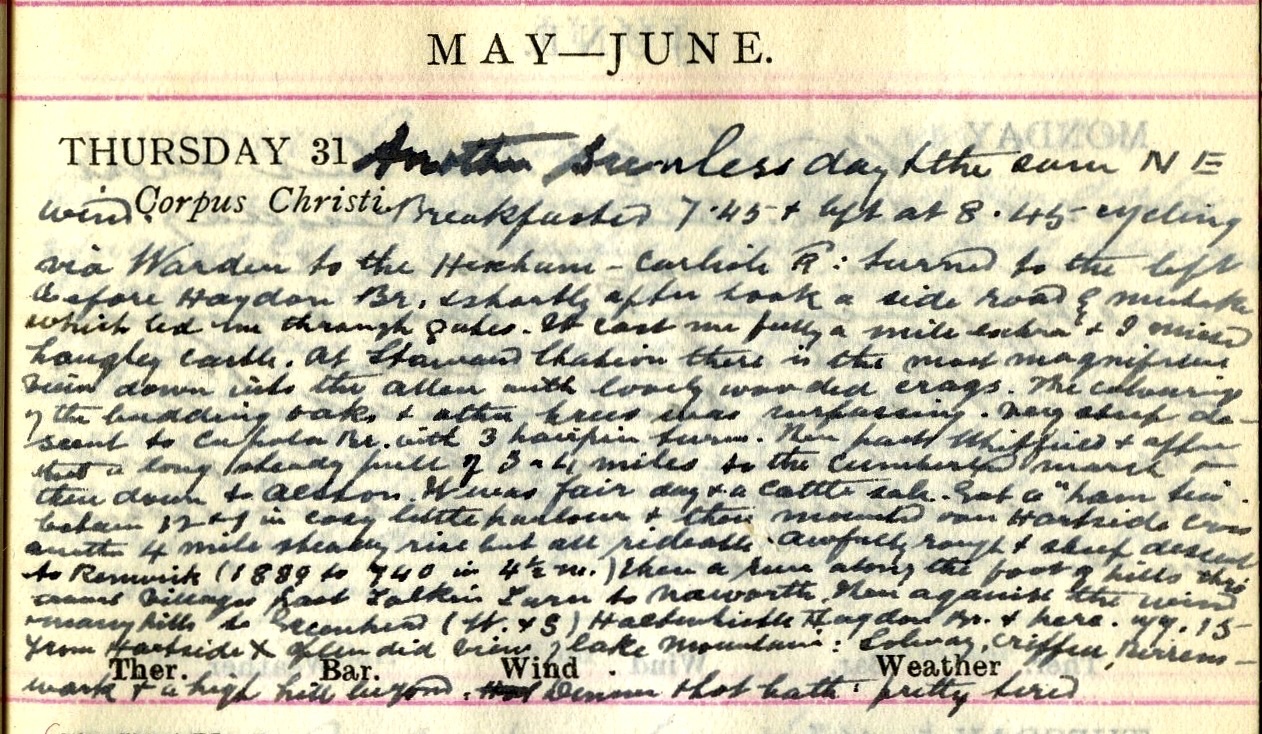 MAY—JUNE.
THURSDAY 31 Another sunless day & the same N E
wind. Corpus Christi. Breakfasted 7.45 & left at 8.45 cycling
via Warden to the Hexham - Carlisle Rd: turned to the left
before Haydon Br. & shortly after took a side road by mistake
which led me through gates. It cost me fully a mile extra & I missed
Langley Castle. At Staward Station there is the most magnificent
view down into the Allen with lovely wooded crags. The colouring
of the budding oaks & other trees was surpassing. Very steep de-
scent to Cupola Br. with 3 hairpin turns. Then past Whitfield & after
that a long steady pull of 3 or 4 miles to the Cumberland march &
then down to Alston. It was fair day & a cattle sale. Got a "ham tea"
between 12 & 1 in cosy little parlour & then mounted over Hartside Cross
another 4 mile steady rise but all rideable. Awfully rough & steep descent
to Renwick (1889 to 740 in 4½ m.) then a run along the foot of hills thro
villages past Talkin Tarn to Naworth. Then against the wind
& many hills to Greenhead (W. & S) Haltwhistle Haydon Br. & here. 15
From Hartside X splendid view of lake mountains: Solway, Criffel, Birrens-
Ther. Bar. Wind Weather
wark & a high hill beyond. Dinner & hot bath: pretty tired